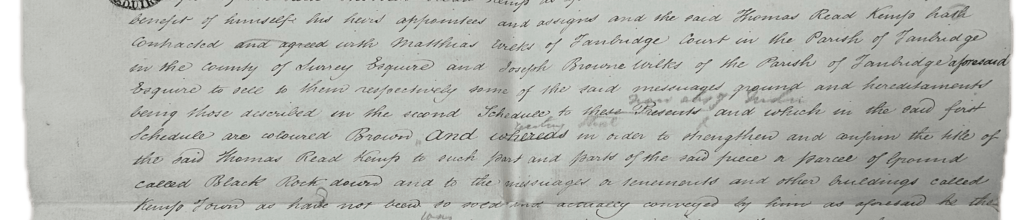 benefit of himself his heirs appointees and assigns and the said Thomas Read Kemp hath
Contracted and agreed with Matthias Wilks of Tanbridge Court in the Parish of Tanbridge
in the County of Surrey Esquire and Joseph Browne Wilks of the Parish of Tanbridge aforesaid
Esquire to sell to them respectively some of the said messuages ground and hereditaments
being those described in the second Schedule to these Presents and which in the said first
Schedule are coloured Brown And whereas in order to strengthen and confirm the title of
the said Thomas Read Kemp to such part and parts of the said piece or parcel of Ground
called Black Rock down and to the messuages or tenements and other buildings called
Kemp Town as have not been so sold and actually conveyed by him as aforesaid he the